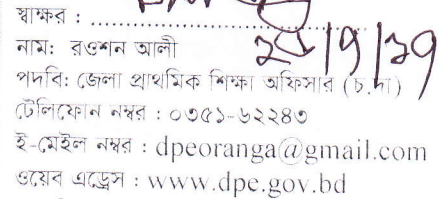 স্বাক্ষর : ..............................
নাম: রওশন আলী
পদবি: জেলা প্রাথমিক শিক্ষা অফিসার (চ.দা)
টেলিফোন নম্বর : ০৩৫১-৬২২৪৩
ই-মেইল নম্বর : dpeoranga@gmail.com
ওয়েব এড্রেস : www.dpe.gov.bd